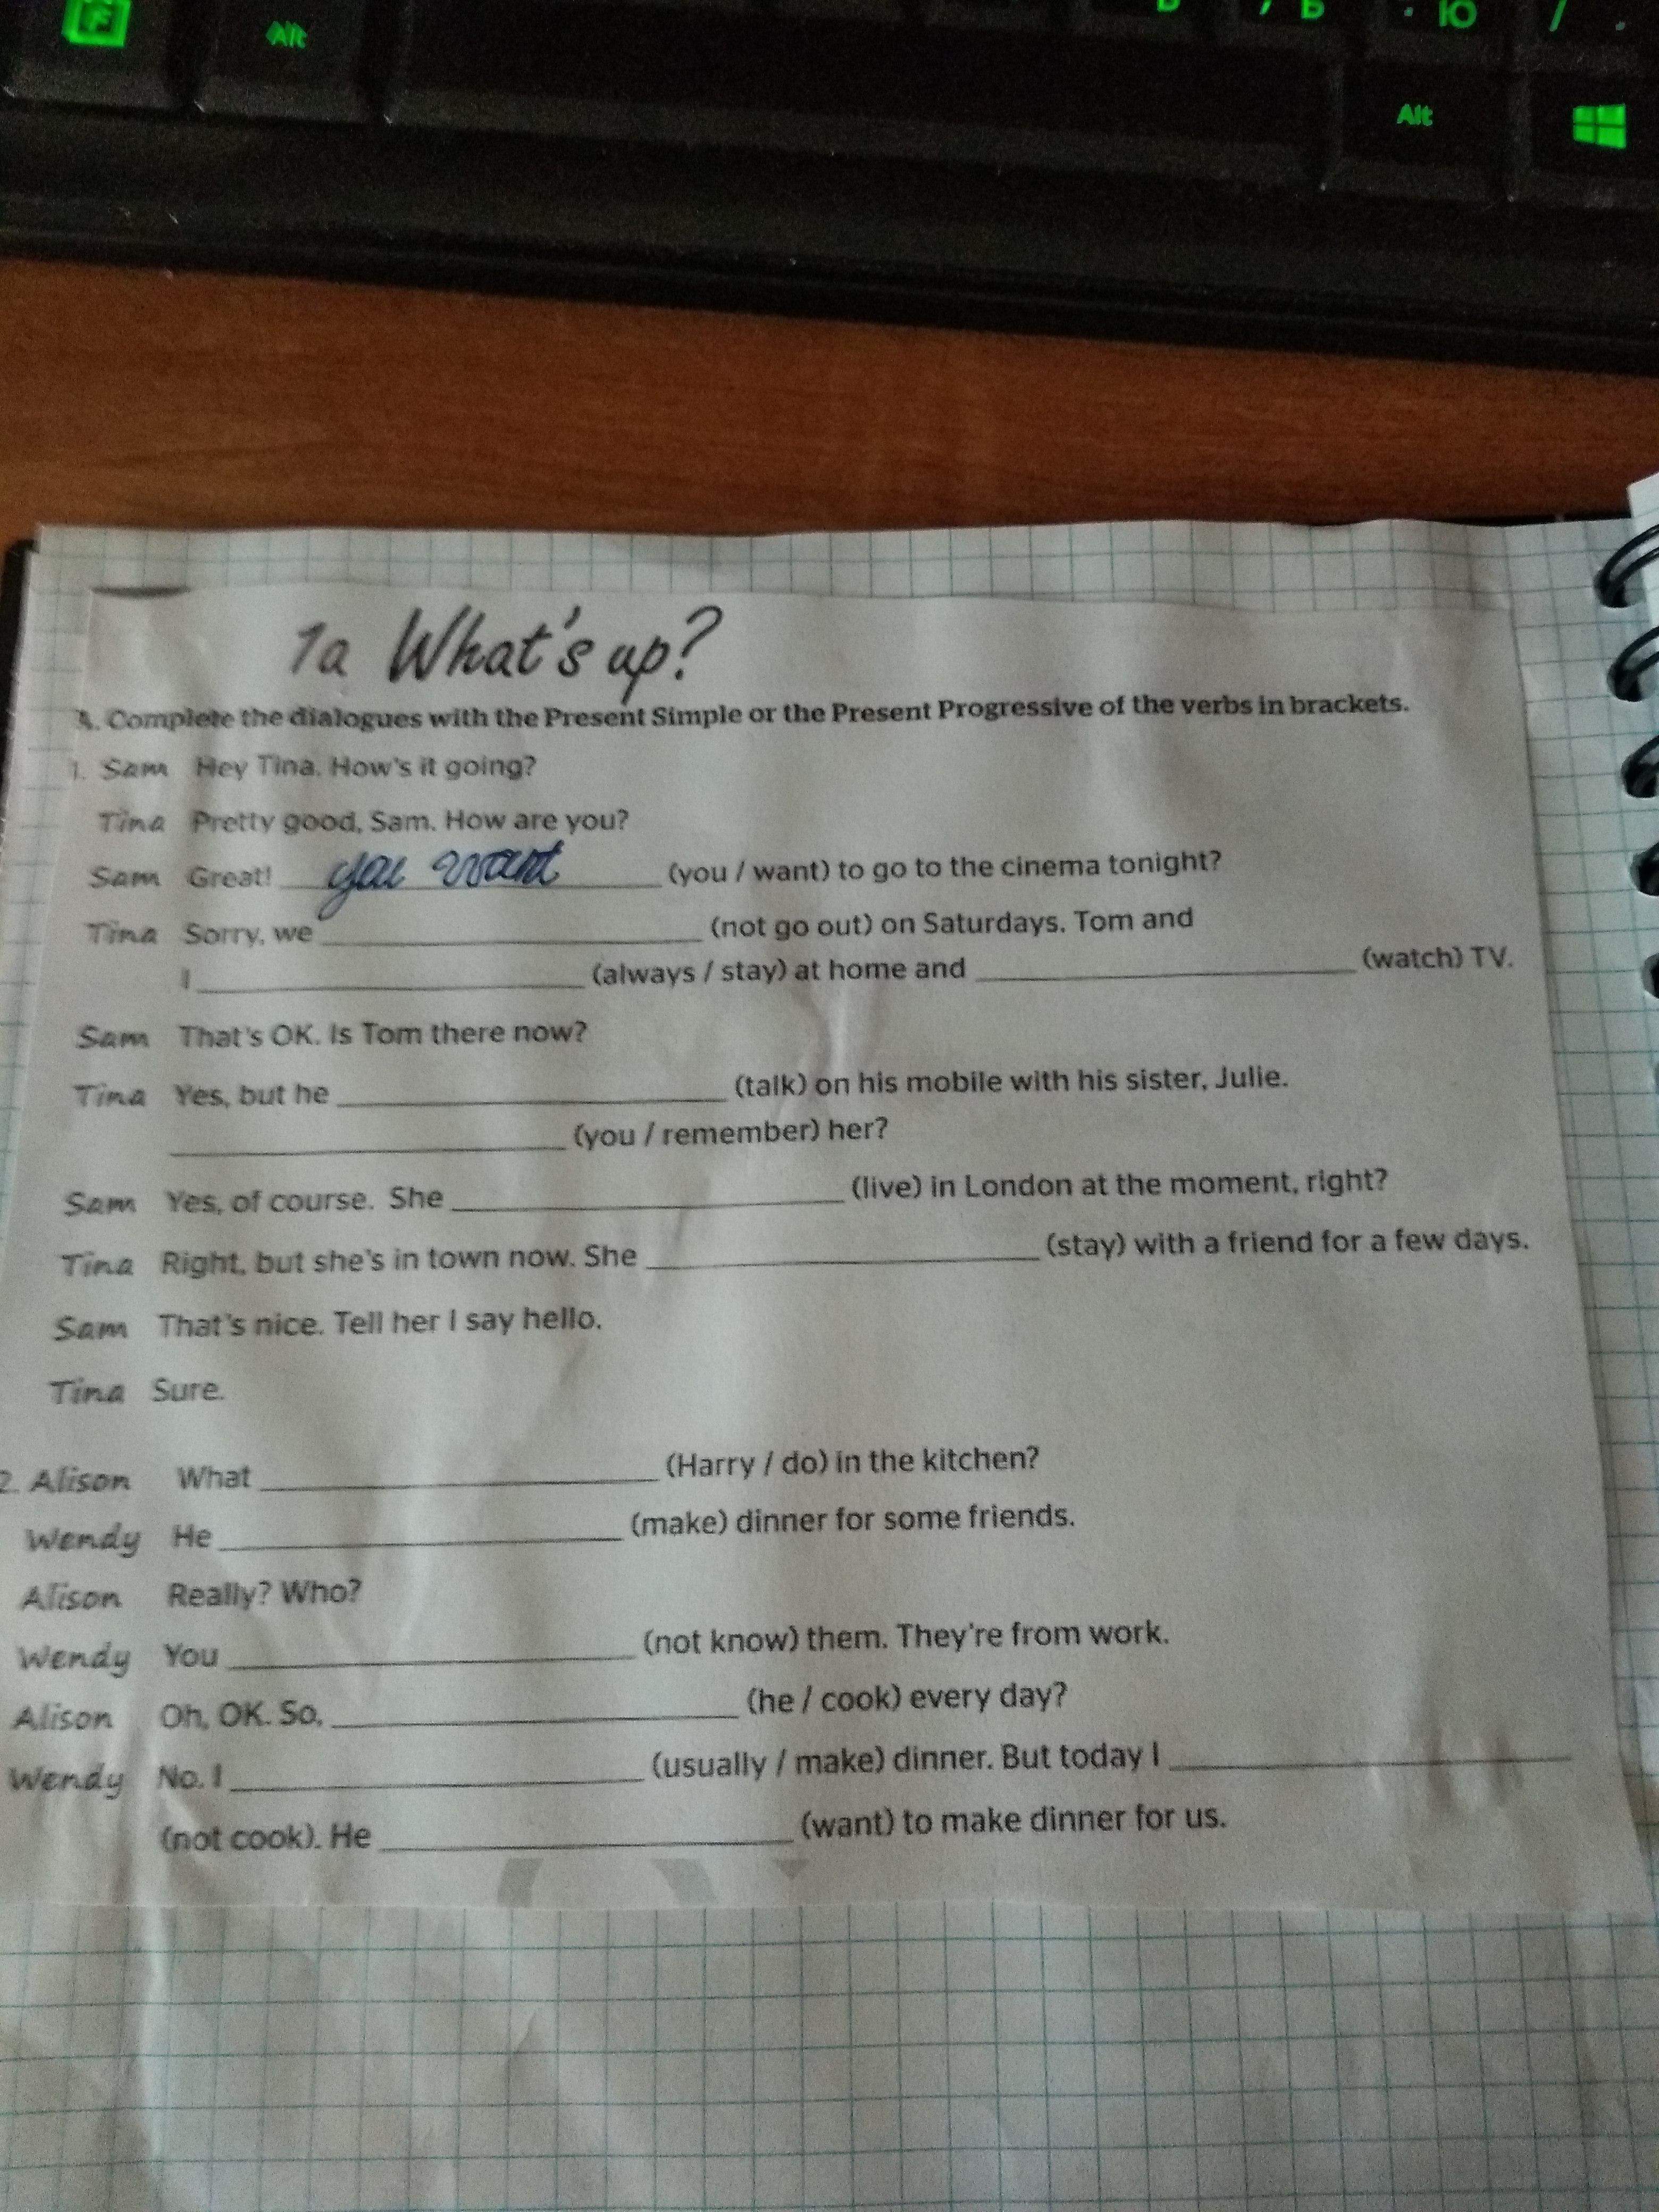 Alt
Б Ю /
Alt
1a What's up?
A. Complete the dialogues with the Present Simple or the Present Progressive of the verbs in brackets.
1. Sam Hey Tina. How's it going?
Tina Pretty good, Sam. How are you?
Sam Great! you want (you / want) to go to the cinema tonight?
Tina Sorry, we ____ (not go out) on Saturdays. Tom and
I ____ (always / stay) at home and ____ (watch) TV.
Sam That's OK. Is Tom there now?
Tina Yes, but he ____ (talk) on his mobile with his sister, Julie.
____ (you / remember) her?
Sam Yes, of course. She ____ (live) in London at the moment, right?
Tina Right, but she's in town now. She ____ (stay) with a friend for a few days.
Sam That's nice. Tell her I say hello.
Tina Sure.
2. Alison What ____ (Harry / do) in the kitchen?
Wendy He ____ (make) dinner for some friends.
Alison Really? Who?
Wendy You ____ (not know) them. They're from work.
Alison Oh, OK. So, ____ (he / cook) every day?
Wendy No. I ____ (usually / make) dinner. But today I ____
(not cook). He ____ (want) to make dinner for us.